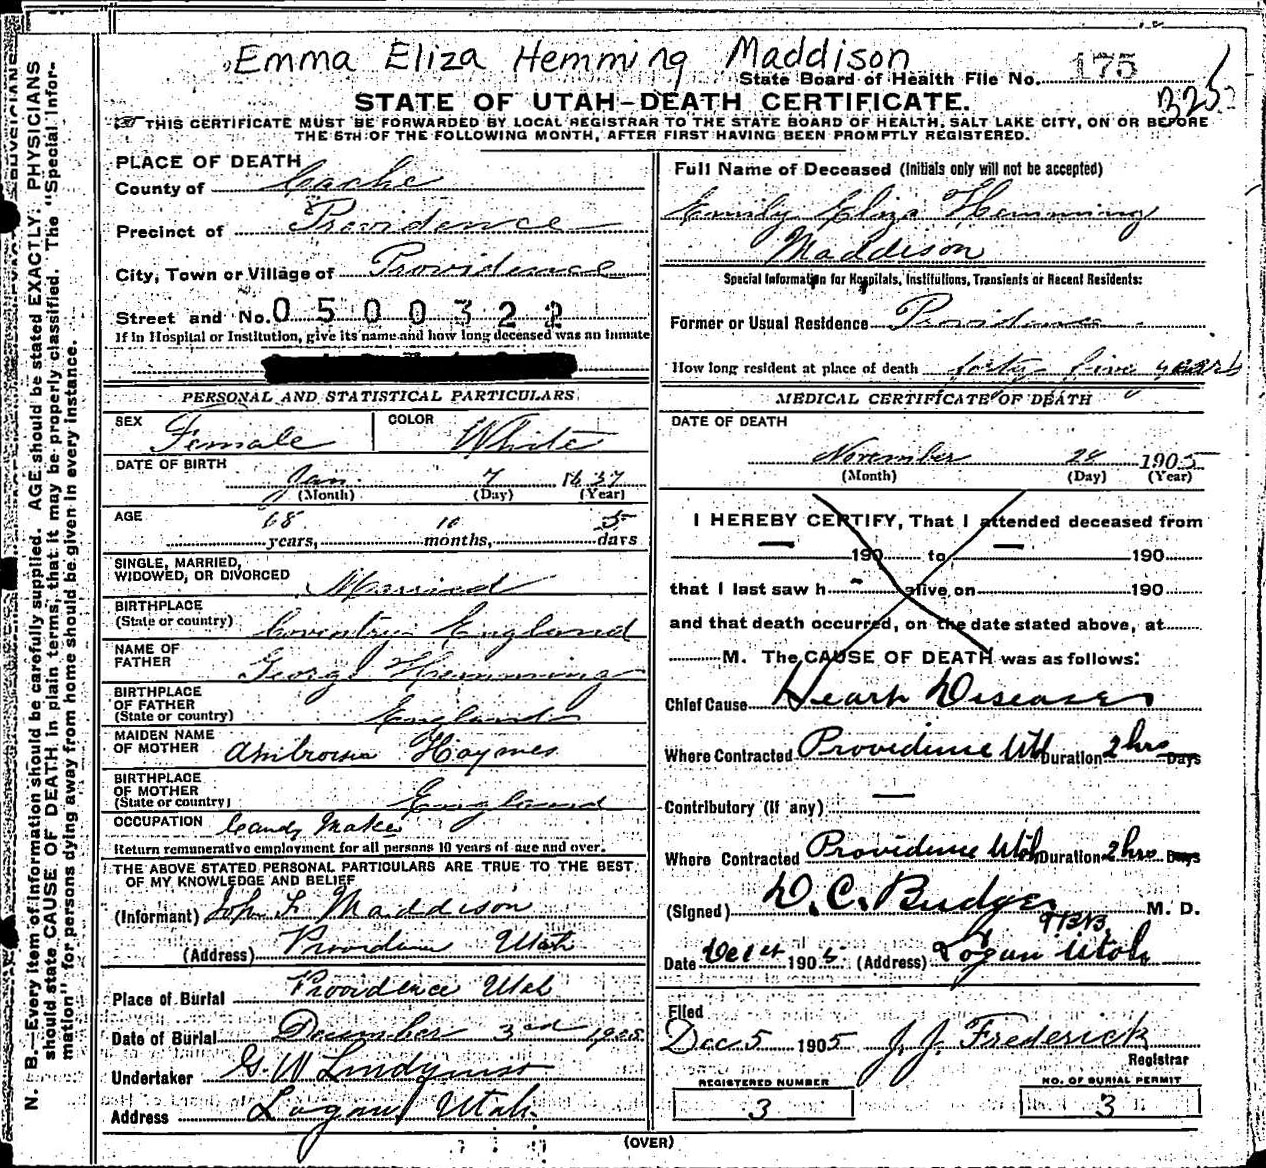 Emma Eliza Hemming Maddison
State Board of Health File No. 175
B25
STATE OF UTAH-DEATH CERTIFICATE.
THIS CERTIFICATE MUST BE FORWARDED BY LOCAL REGISTRAR TO THE STATE BOARD OF HEALTH, SALT LAKE CITY, ON OR BEFORE
THE 5TH OF THE FOLLOWING MONTH, AFTER FIRST HAVING BEEN PROMPTLY REGISTERED.
PLACE OF DEATH
County of Cache
Precinct of Providence
City, Town or Village of Providence
Street and No. 0500322
If in Hospital or Institution, give its name and how long deceased was an inmate
PERSONAL AND STATISTICAL PARTICULARS
SEX Female COLOR White
DATE OF BIRTH
Jan. 7 1837
(Month) (Day) (Year)
AGE 68 years, 10 months, days
SINGLE, MARRIED,
WIDOWED, OR DIVORCED Married
BIRTHPLACE
(State or country) Coventry England
NAME OF
FATHER George Hemming
BIRTHPLACE
OF FATHER
(State or country) England
MAIDEN NAME
OF MOTHER Ambrosia Haymes
BIRTHPLACE
OF MOTHER
(State or country) England
OCCUPATION Candy Maker
Return remunerative employment for all persons 10 years of age and over.
THE ABOVE STATED PERSONAL PARTICULARS ARE TRUE TO THE BEST
OF MY KNOWLEDGE AND BELIEF
(Informant) John F Maddison
(Address) Providence Utah
Place of Burial Providence Utah
Date of Burial December 3rd 1905
Undertaker G. W Lindquist
Address Logan Utah.
Full Name of Deceased (Initials only will not be accepted)
Emily Eliza Hemming
Maddison
Special Information for Hospitals, Institutions, Transients or Recent Residents:
Former or Usual Residence Providence
How long resident at place of death forty five years
MEDICAL CERTIFICATE OF DEATH
DATE OF DEATH
November 28 1905
(Month) (Day) (Year)
I HEREBY CERTIFY, That I attended deceased from
190 to 190
that I last saw h alive on 190
and that death occurred, on the date stated above, at
M. The CAUSE OF DEATH was as follows:
Chief Cause Heart Disease
Where Contracted Providence Utah Duration 2 hrs Days
Contributory (if any) —
Where Contracted Providence Utah Duration 2 hrs Days
(Signed) D. C. Budge M. D.
Date Dec 1st 1905 (Address) Logan Utah
Filed
Dec 5 1905 J. J. Frederick
Registrar
REGISTERED NUMBER
3
NO. OF BURIAL PERMIT
3
(OVER)
N. B.—Every item of information should be carefully supplied. AGE should be stated EXACTLY. PHYSICIANS
should state CAUSE OF DEATH in plain terms, that it may be properly classified. The "Special Infor-
mation" for persons dying away from home should be given in every instance.